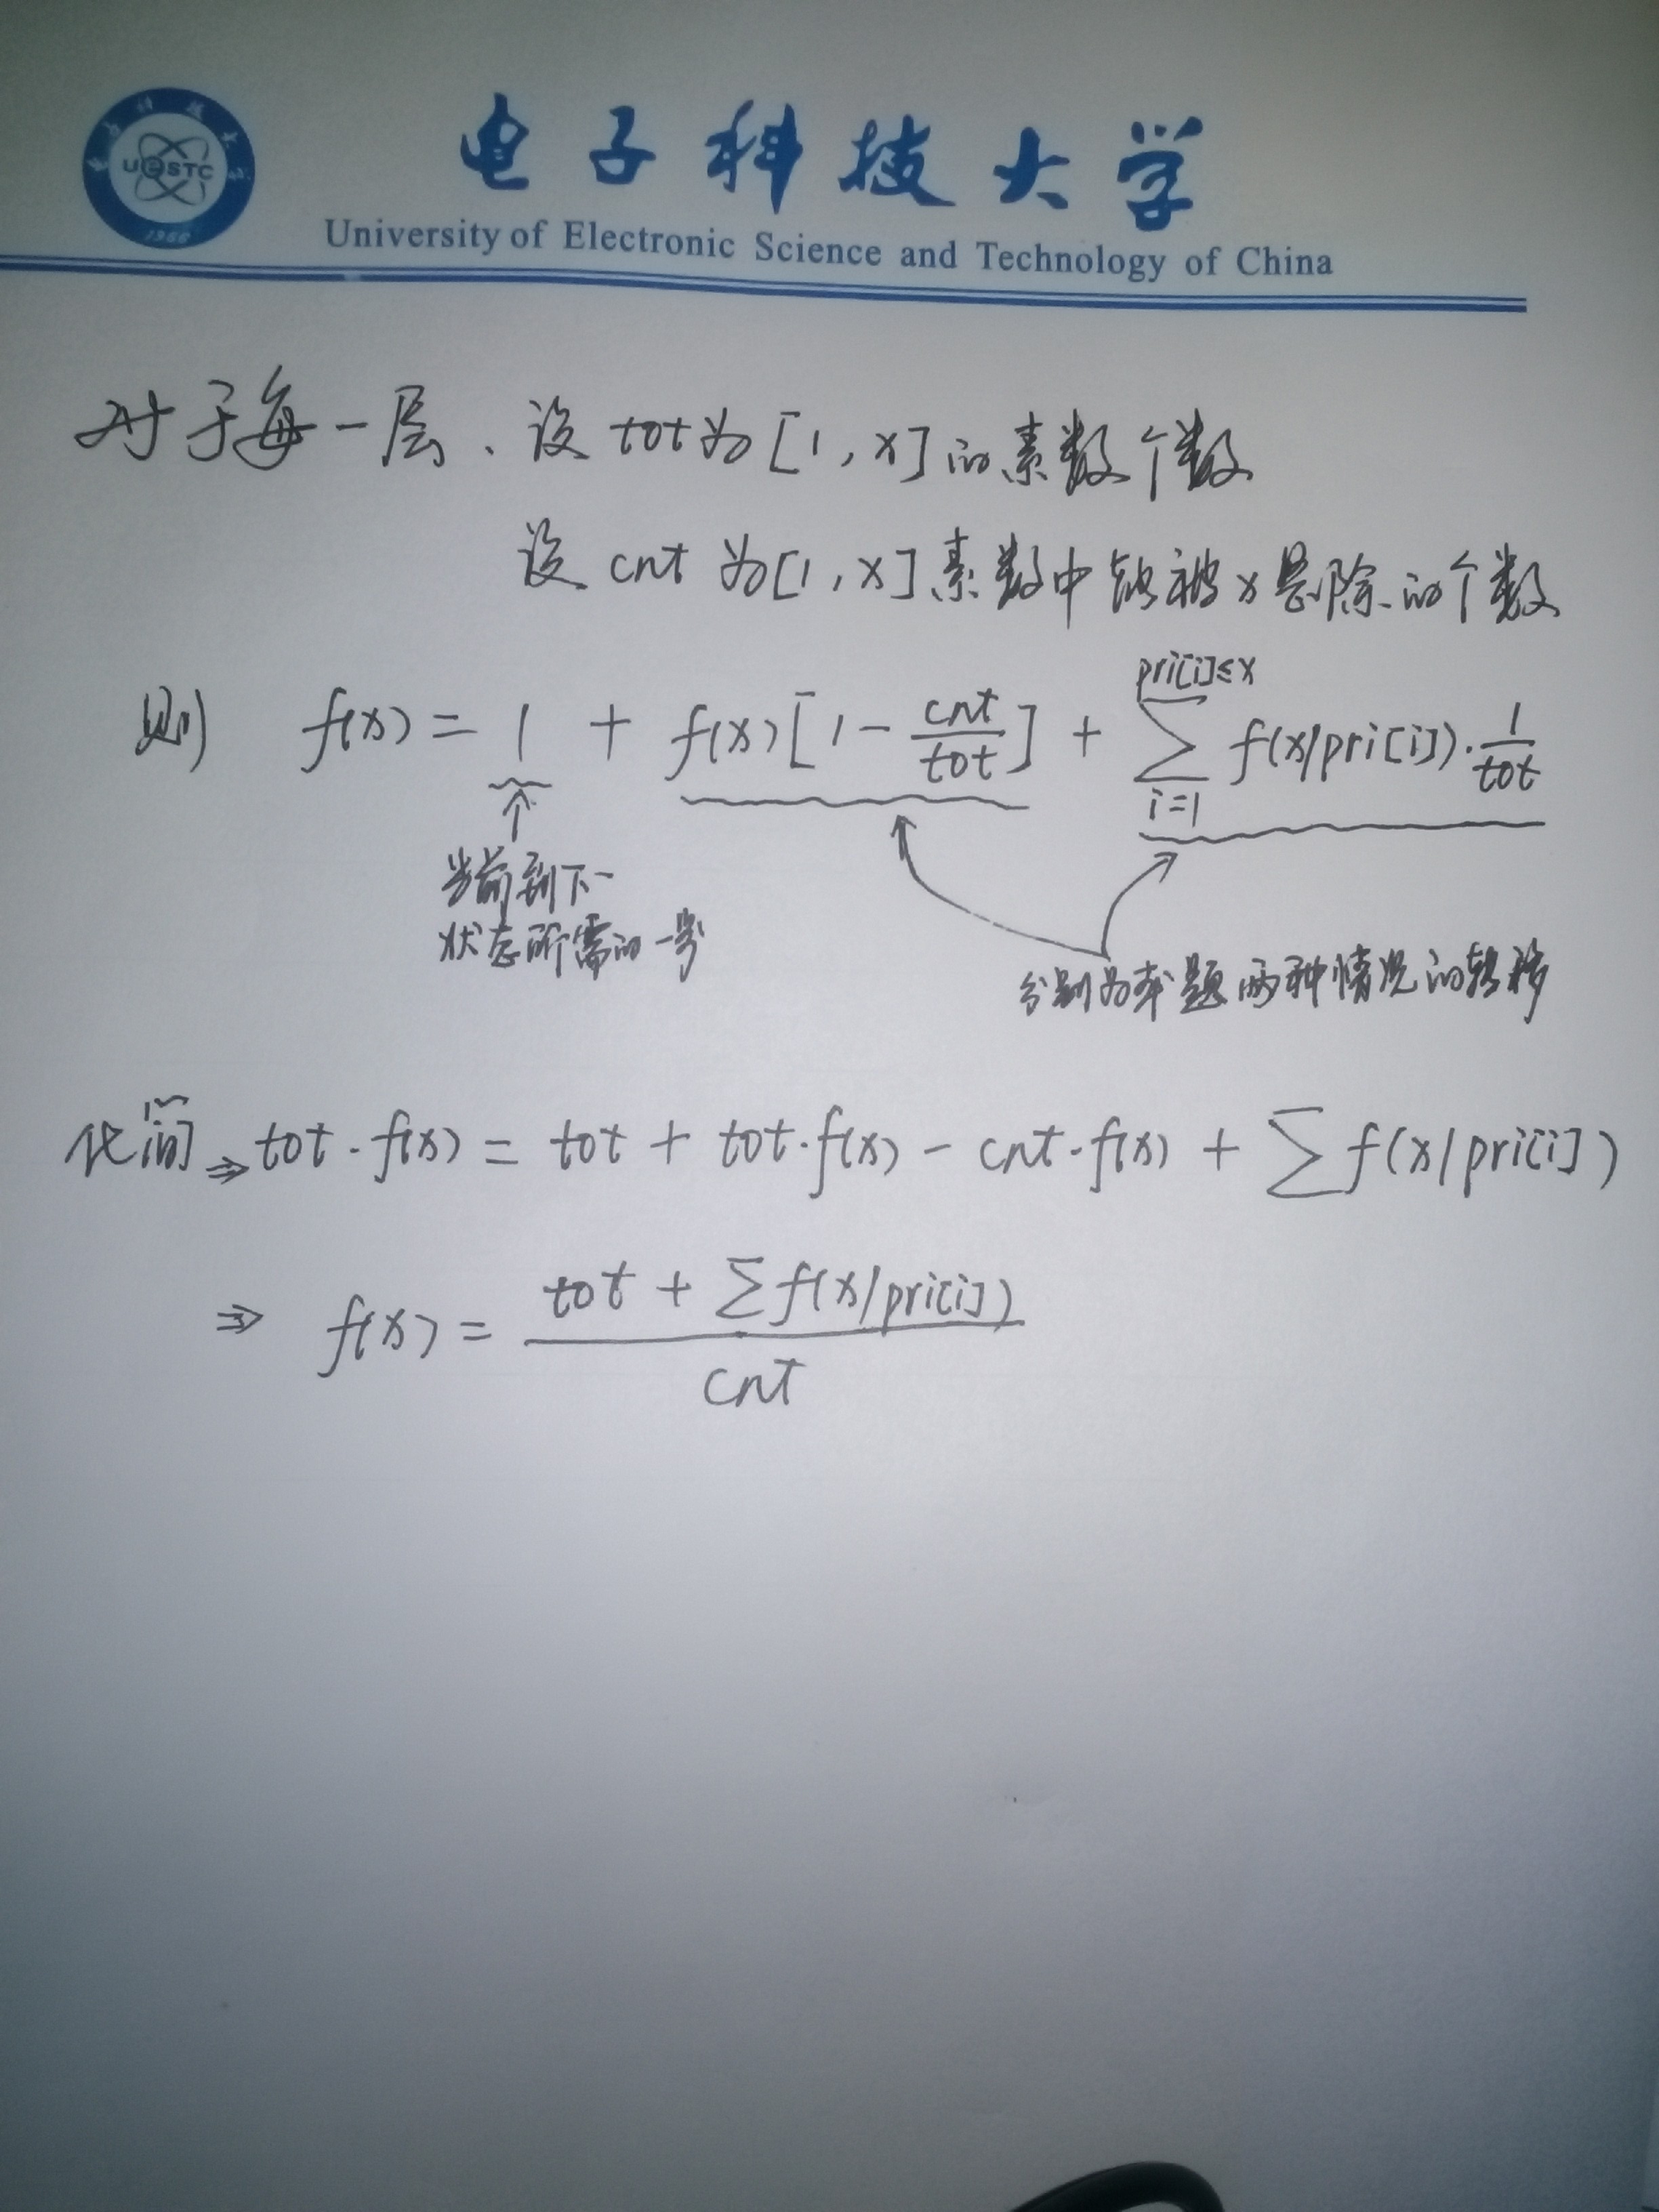 电子科技大学
UESTC
1956
University of Electronic Science and Technology of China
对于每一层、设 tot为[1,x]的素数个数
设 cnt 为[1,x]素数中能被x整除的个数
则 f(x) = 1 + f(x)[1 - cnt/tot] + ∑_{i=1}^{pri[i]≤x} f(x/pri[i])·1/tot
当前到下一
状态所需的一步
分别为本题两种情况的转移
化简 ⇒ tot·f(x) = tot + tot·f(x) - cnt·f(x) + ∑f(x/pri[i])
⇒ f(x) = (tot + ∑f(x/pri[i])) / cnt